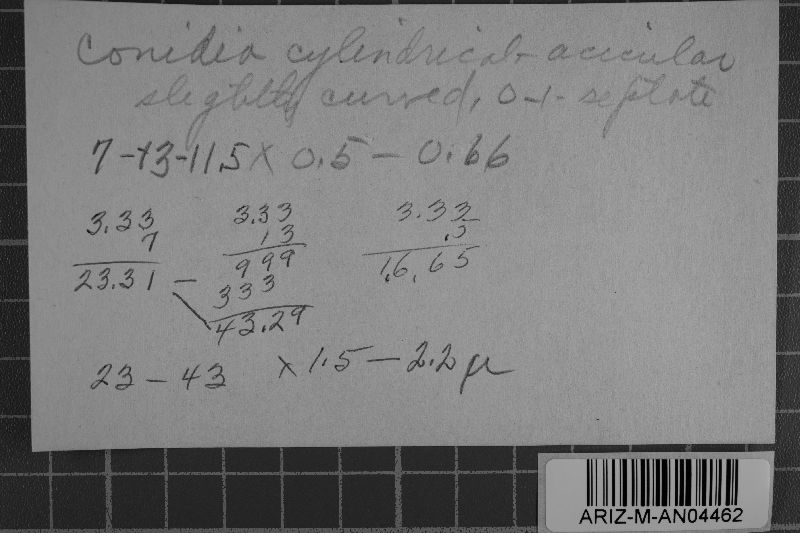 Conidia cylindrical-acicular
slightly curved, 0-1-septate
7-13-11.5 X 0.5 - 0.66
3.33
7
23.31 -
3.33
13
999
333
43.29
3.33
.5
1.6.65
23 - 43 x 1.5 - 2.2 µ
ARIZ-M-AN04462